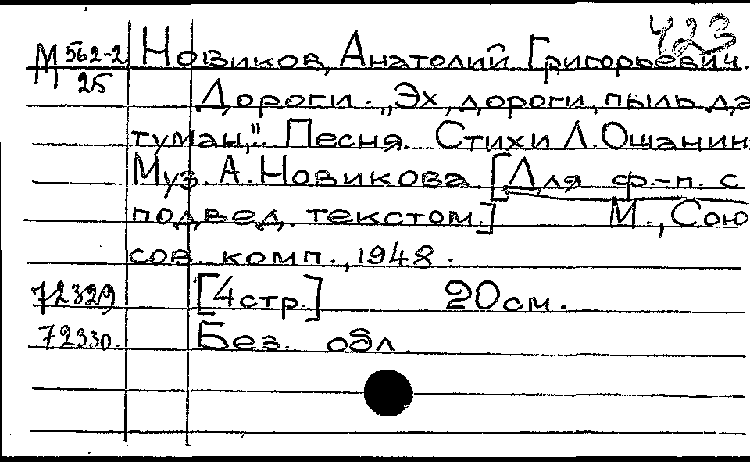 423
М 562-2 Новиков, Анатолий Григорьевич.
25
Дороги. „Эх, дороги, пыль да
туман,". Песня. Стихи Л. Ошанин
Муз. А. Новикова. [Для ф.-п. с
подвед. текстом.] М., Сою
сов. комп., 1948.
72329 [4 стр.] 20 см.
72330. Без. обл.